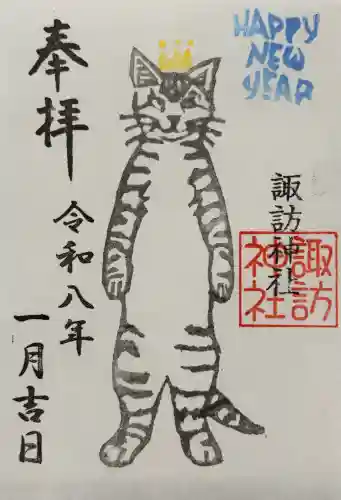 奉拝
令和八年
一月吉日
HAPPY
NEW
YEAR
諏訪神社
諏訪
神社